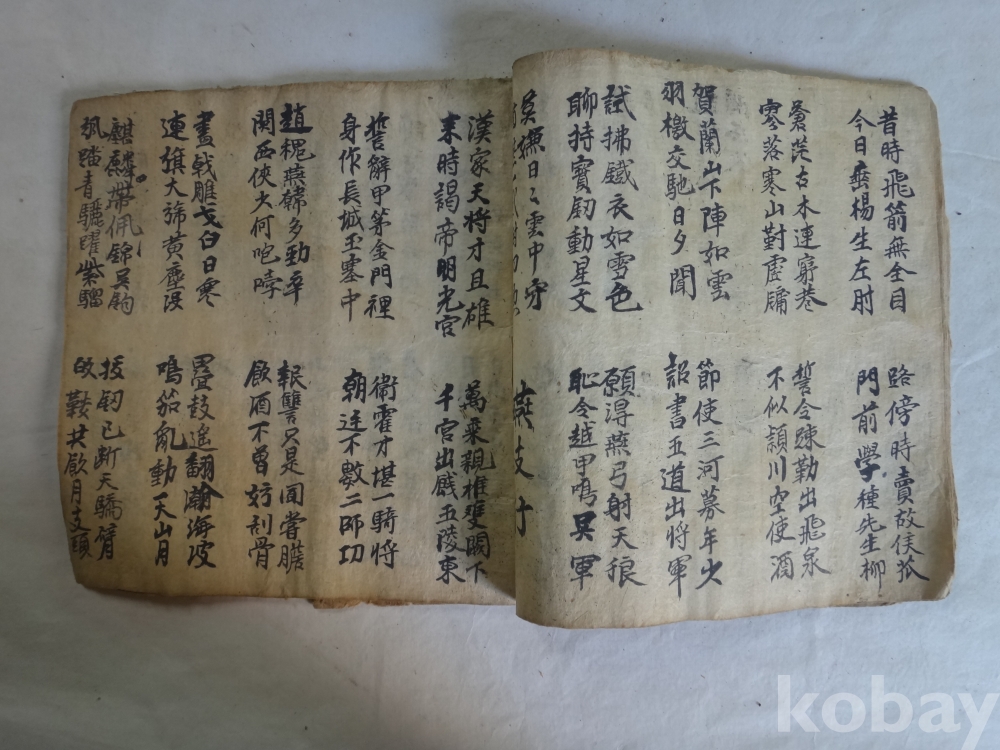 昔時飛箭無全目
今日垂楊生左肘
路傍時賣故侯瓜
門前學種先生柳
蒼茫古木連窮巷
寥落寒山對虛牖
誓令疎勒出飛泉
不似穎川空使酒
賀蘭山下陣如雲
羽檄交馳日夕聞
節使三河募年少
詔書五道出將軍
試拂鐵衣如雪色
聊持寶劒動星文
願得燕弓射天狼
恥令越甲鳴吳軍
莫嫌日々雲中守
燕支行
漢家天將才且雄
來時謁帝明光宮
萬乘親推雙闕下
千官出餞五陵東
誓辭甲第金門裡
身作長城玉塞中
衛霍才堪一騎將
朝廷不數二師功
趙魏燕韓多勁卒
関西俠少何咆哮
報讐只是聞嘗膽
飲酒不曾妨刮骨
畫戟雕戈白日寒
連旗大旆黃塵沒
疊鼓遙翻瀚海波
鳴笳亂動天山月
麒麟帶佩錦吳鉤
颯踏青驪躍紫騮
拔劒已斷天驕臂
鞍共飲月支頭
kobay